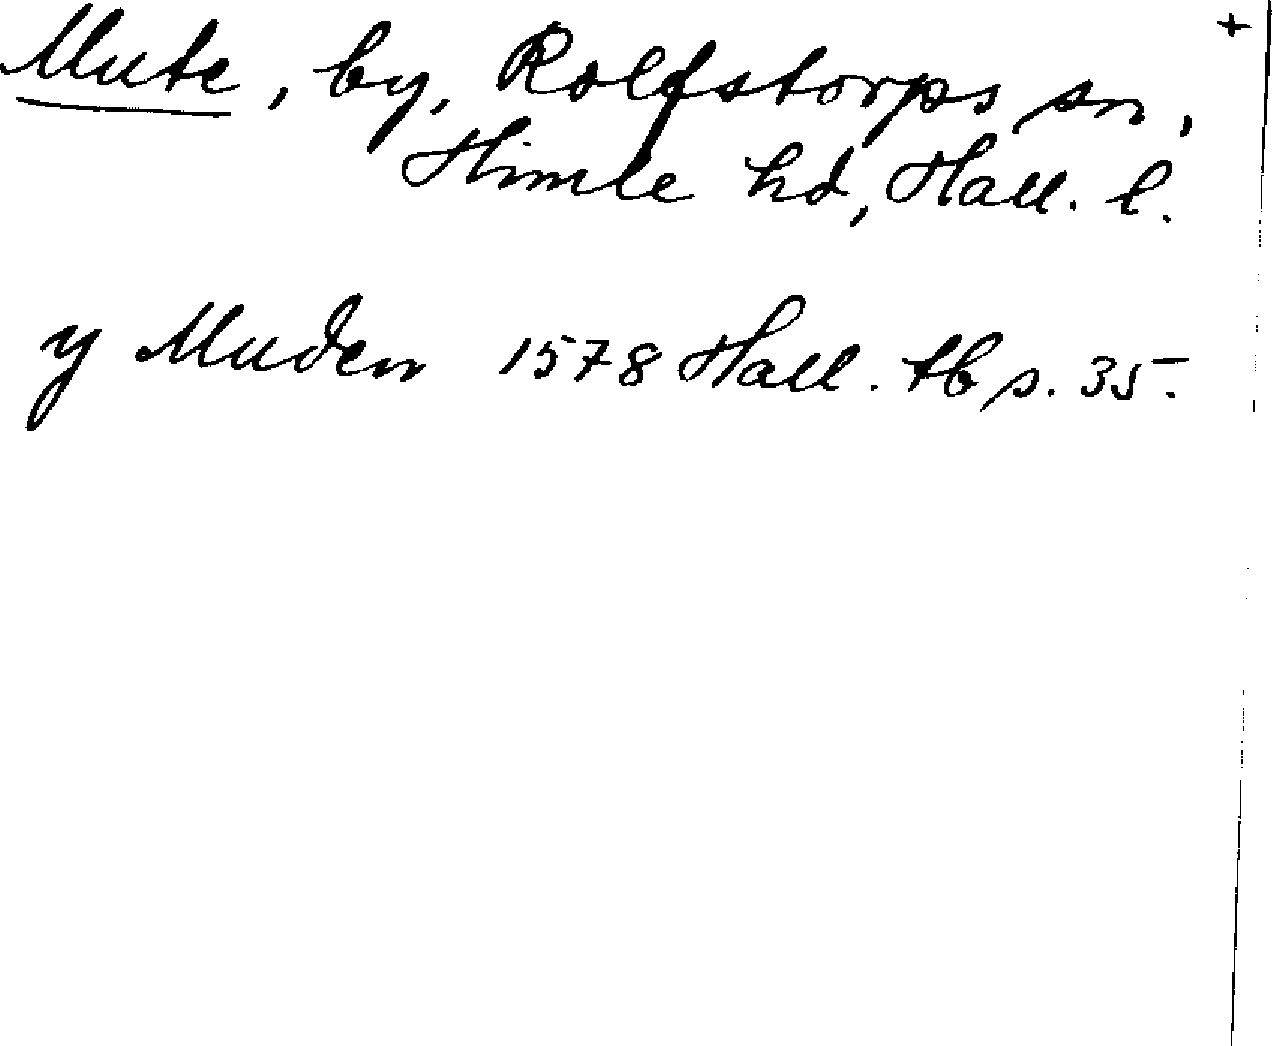 +
Mute, by, Rolfstorps sn,
Himle hd, Hall. l.
y Muden 1578 Hall. tb s. 35.